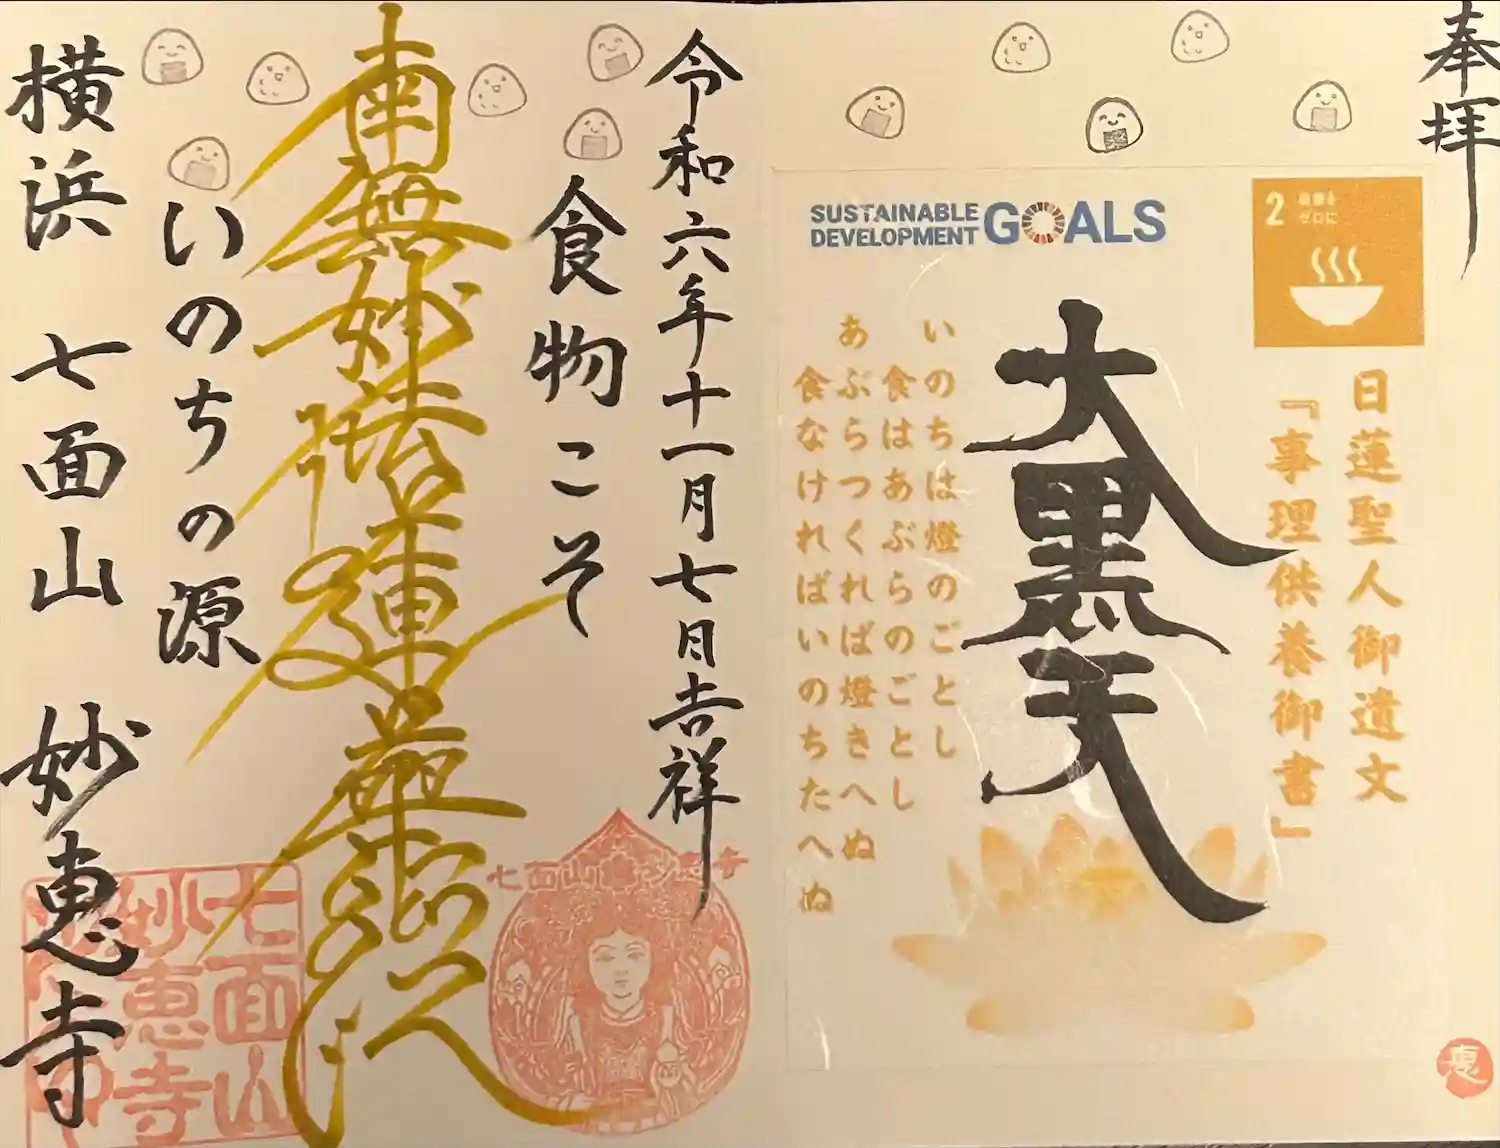 奉拝
SUSTAINABLE
DEVELOPMENT
GOALS
2 飢餓を
ゼロに
日蓮聖人御遺文
『事理供養御書』
大黒天
いのちは燈のごとし
食はあぶらのごとし
あぶらつくれば燈きへぬ
食なければいのちたへぬ
恵
令和六年十一月七日吉祥
食物こそ
南無妙法蓮華経
いのちの源
横浜 七面山 妙恵寺
七面山 妙恵寺
七面山
妙恵寺